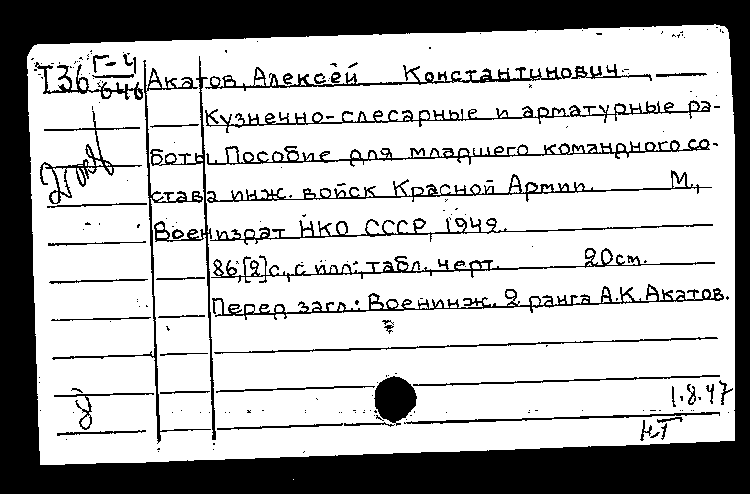 Т36 Г-4/646 Акатов, Алексей Константинович.
Кузнечно-слесарные и арматурные ра-
боты. Пособие для младшего командного со-
става инж. войск Красной Армии. М.,
Воениздат НКО СССР, 1942.
86,[2]с., с илл.; табл., черт. 20см.
Перед загл.: Военинж. 2 ранга А.К.Акатов.
8
1.8.47
НТ